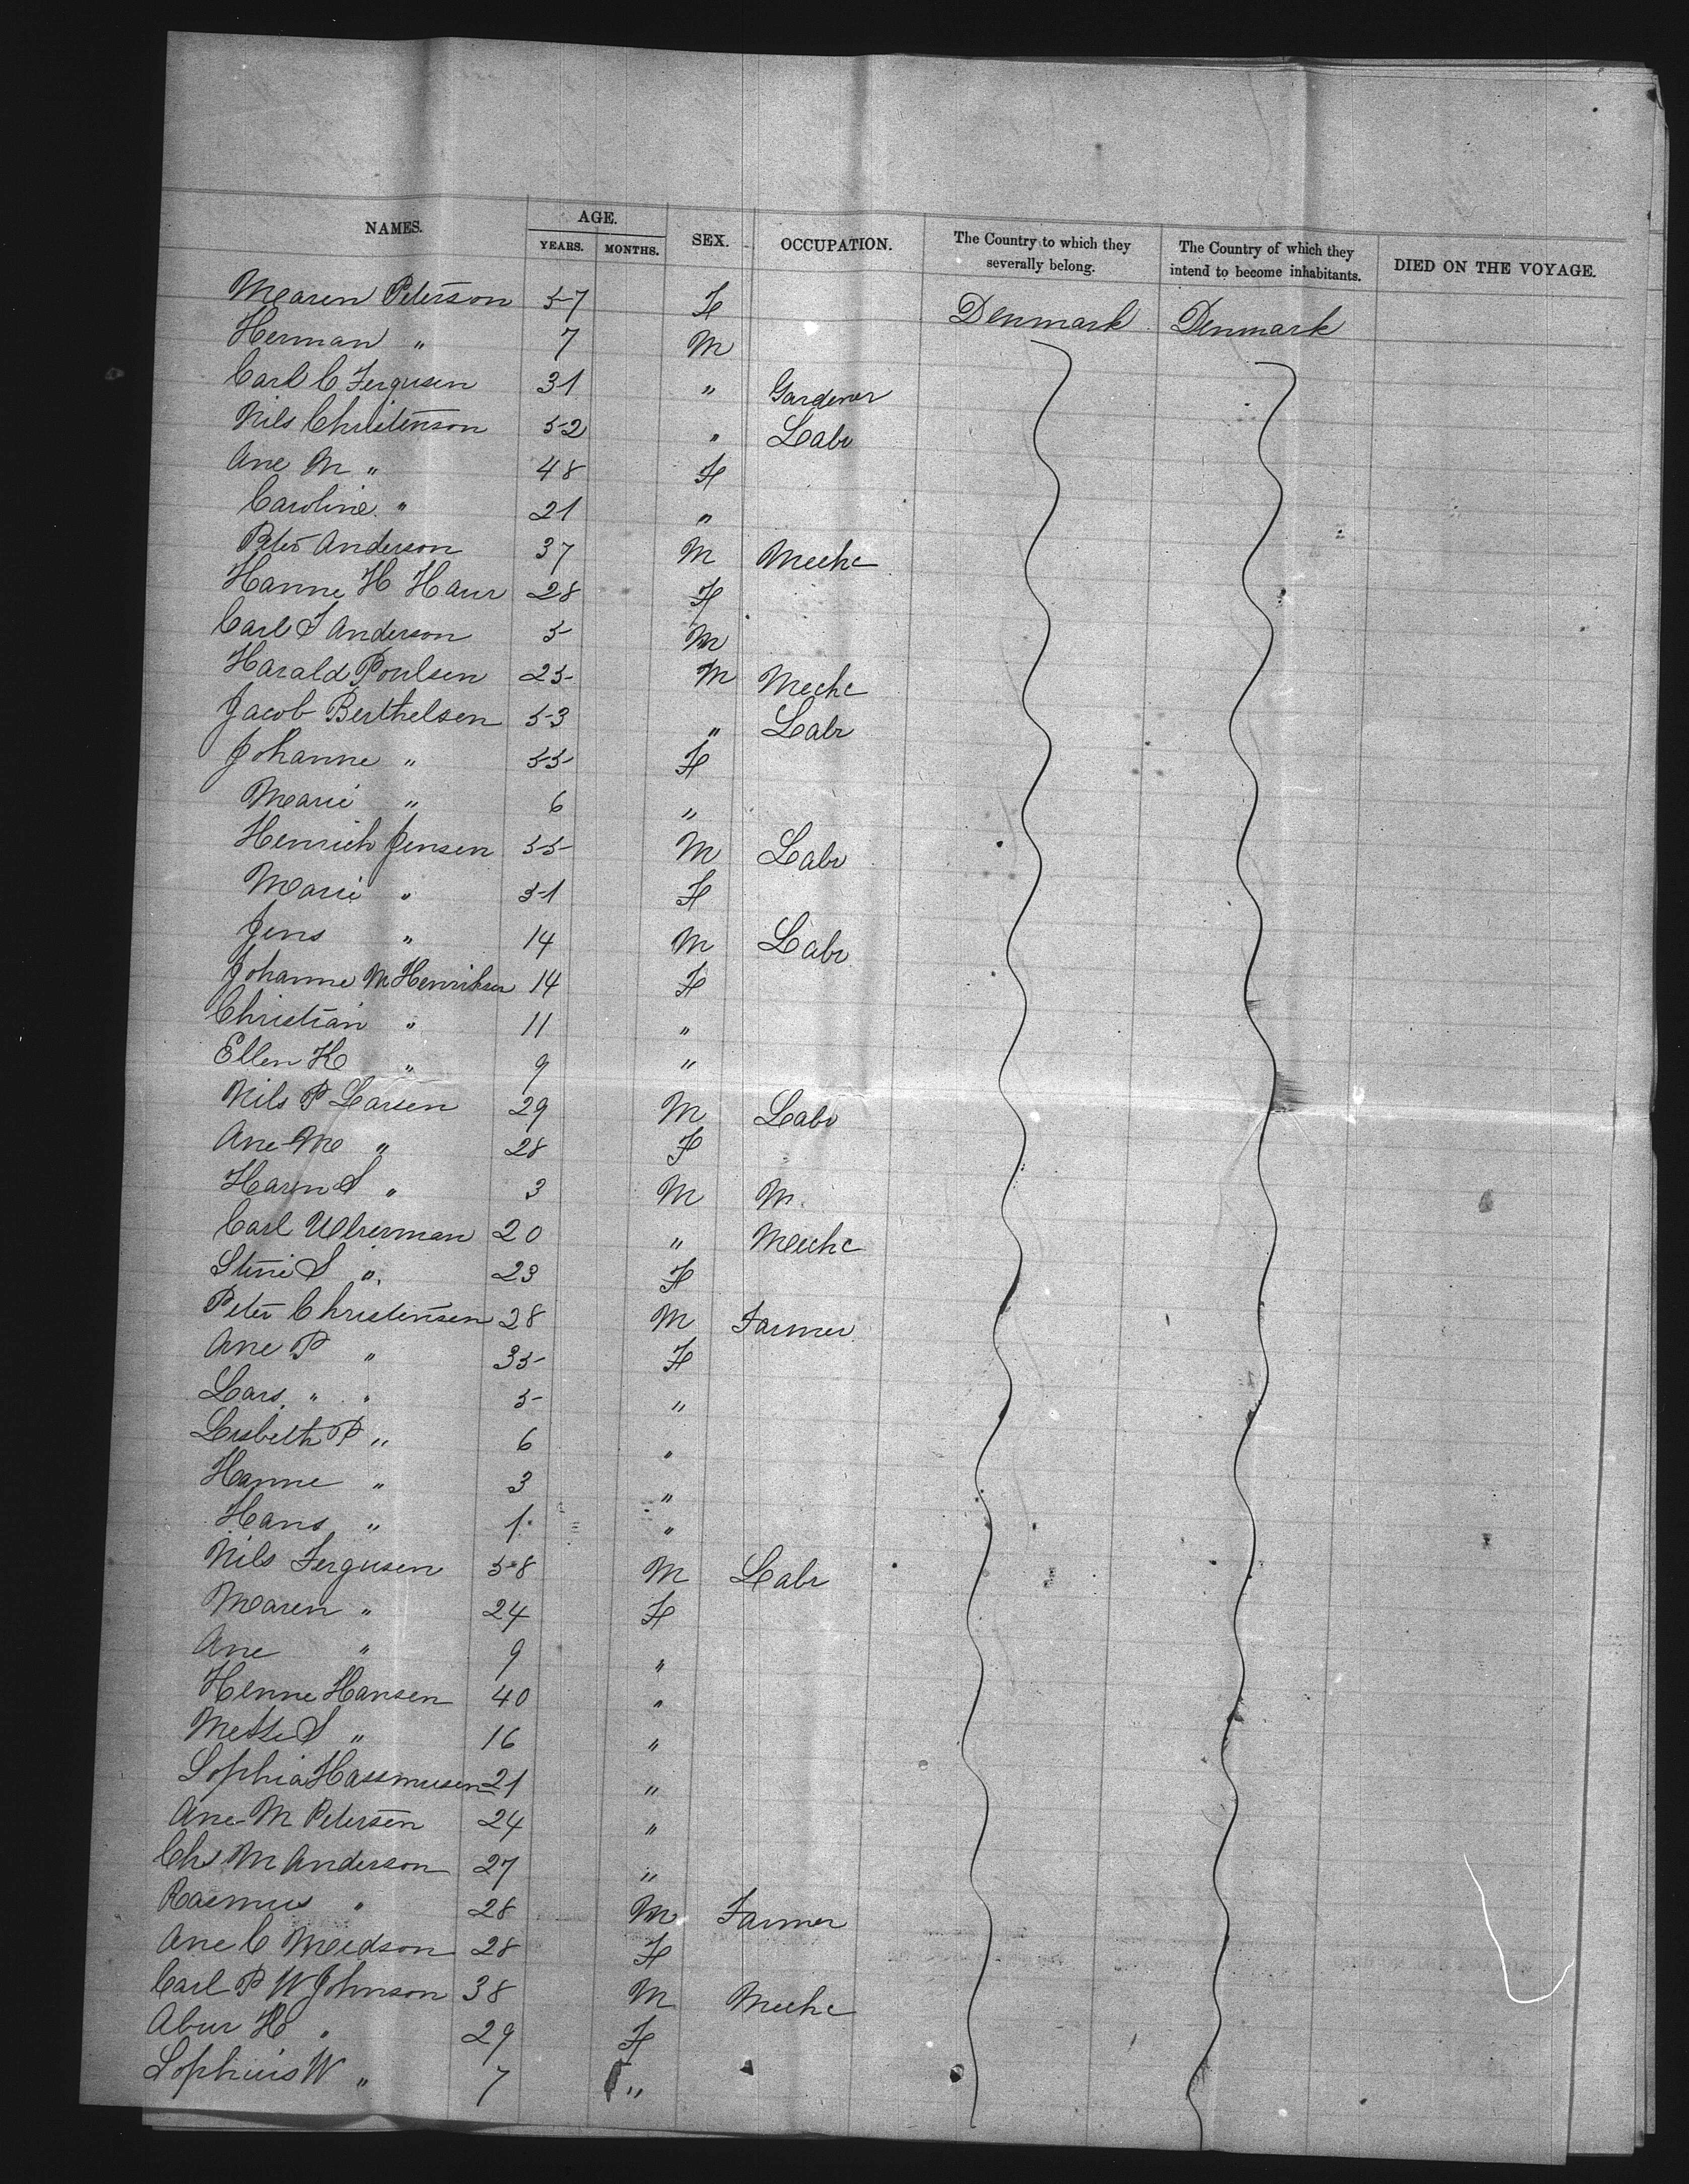 NAMES. AGE. SEX. OCCUPATION. The Country to which they severally belong. The Country of which they intend to become inhabitants. DIED ON THE VOYAGE.
YEARS. MONTHS.
Maren Peterson 57 F Denmark Denmark
Herman " 7 M
Carl C Fergusen 31 " Gardener
Nils Christenson 52 " Labr
Ane M " 48 F
Caroline " 21 "
Peter Anderson 37 M Mechc
Hanne H 28 F
Carl J Anderson 5 M
Harald Poulsen 25 M Mechc
Jacob Berthelsen 53 " Labr
Johanne " 55 F
Marie " 6 "
Henrich Jensen 55 M Labr
Marie " 51 F
Jens " 14 M Labr
Johanne M Henriksen 14 F
Christian " 11 "
Ellen K " 9 "
Nils P Larsen 29 M Labr
Ane M " 28 F
S " 3 M M.
Carl 20 " Mechc
Stine S " 23 F
Peter Christensen 28 M Farmer
Ane P " 35 F
Lars " " 5 "
Lisbeth P " 6 "
Hanne " 3 "
Hans " 1 "
Nils Fergusen 58 M Labr
Maren " 24 F
Ane " 9 "
Henne Hansen 40 "
Mette S " 16 "
Sophia Hassmusen 21 "
Ane M Petersen 24 "
Chs M Anderson 27 "
Rasmus " 28 M Farmer
Ane C Meidson 28 F
Carl P W Johnson 38 M Mechc
H " 29 F
W " 7 "